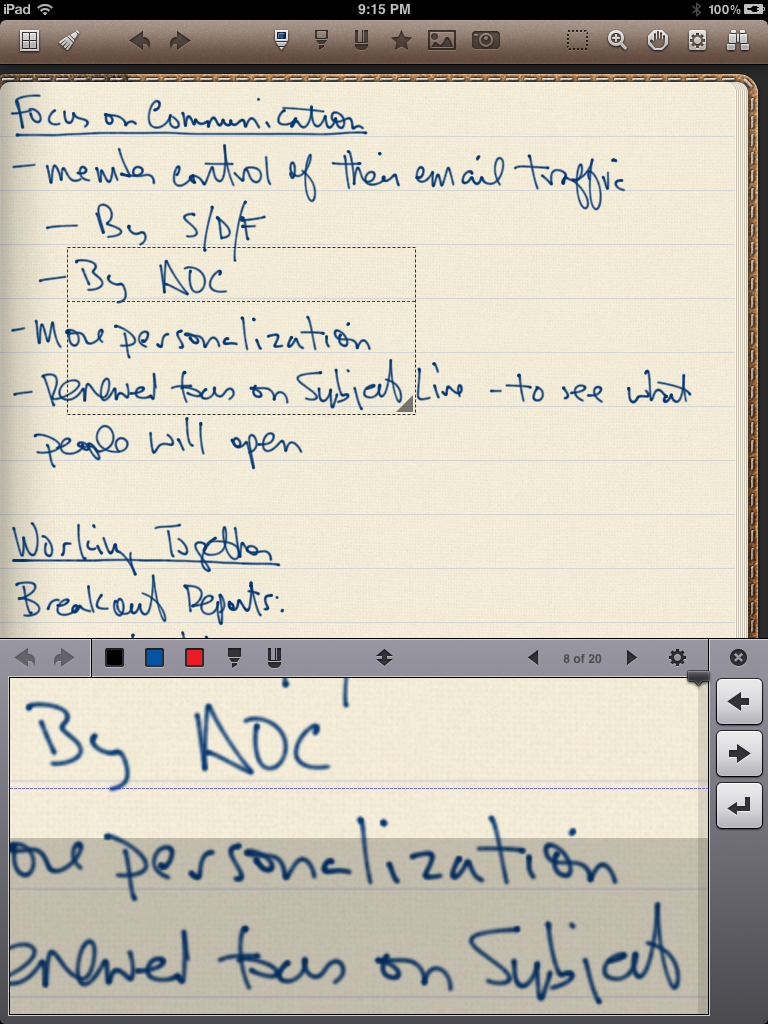 iPad 9:15 PM 100%
Focus on Communication
- member control of their email traffic
- By S/D/F
- By AOC
- More personalization
- Renewed focus on Subject Line - to see what
people will open
Working Together
Breakout Reports:
8 of 20
By AOC
ore personalization
enewed focus on Subject